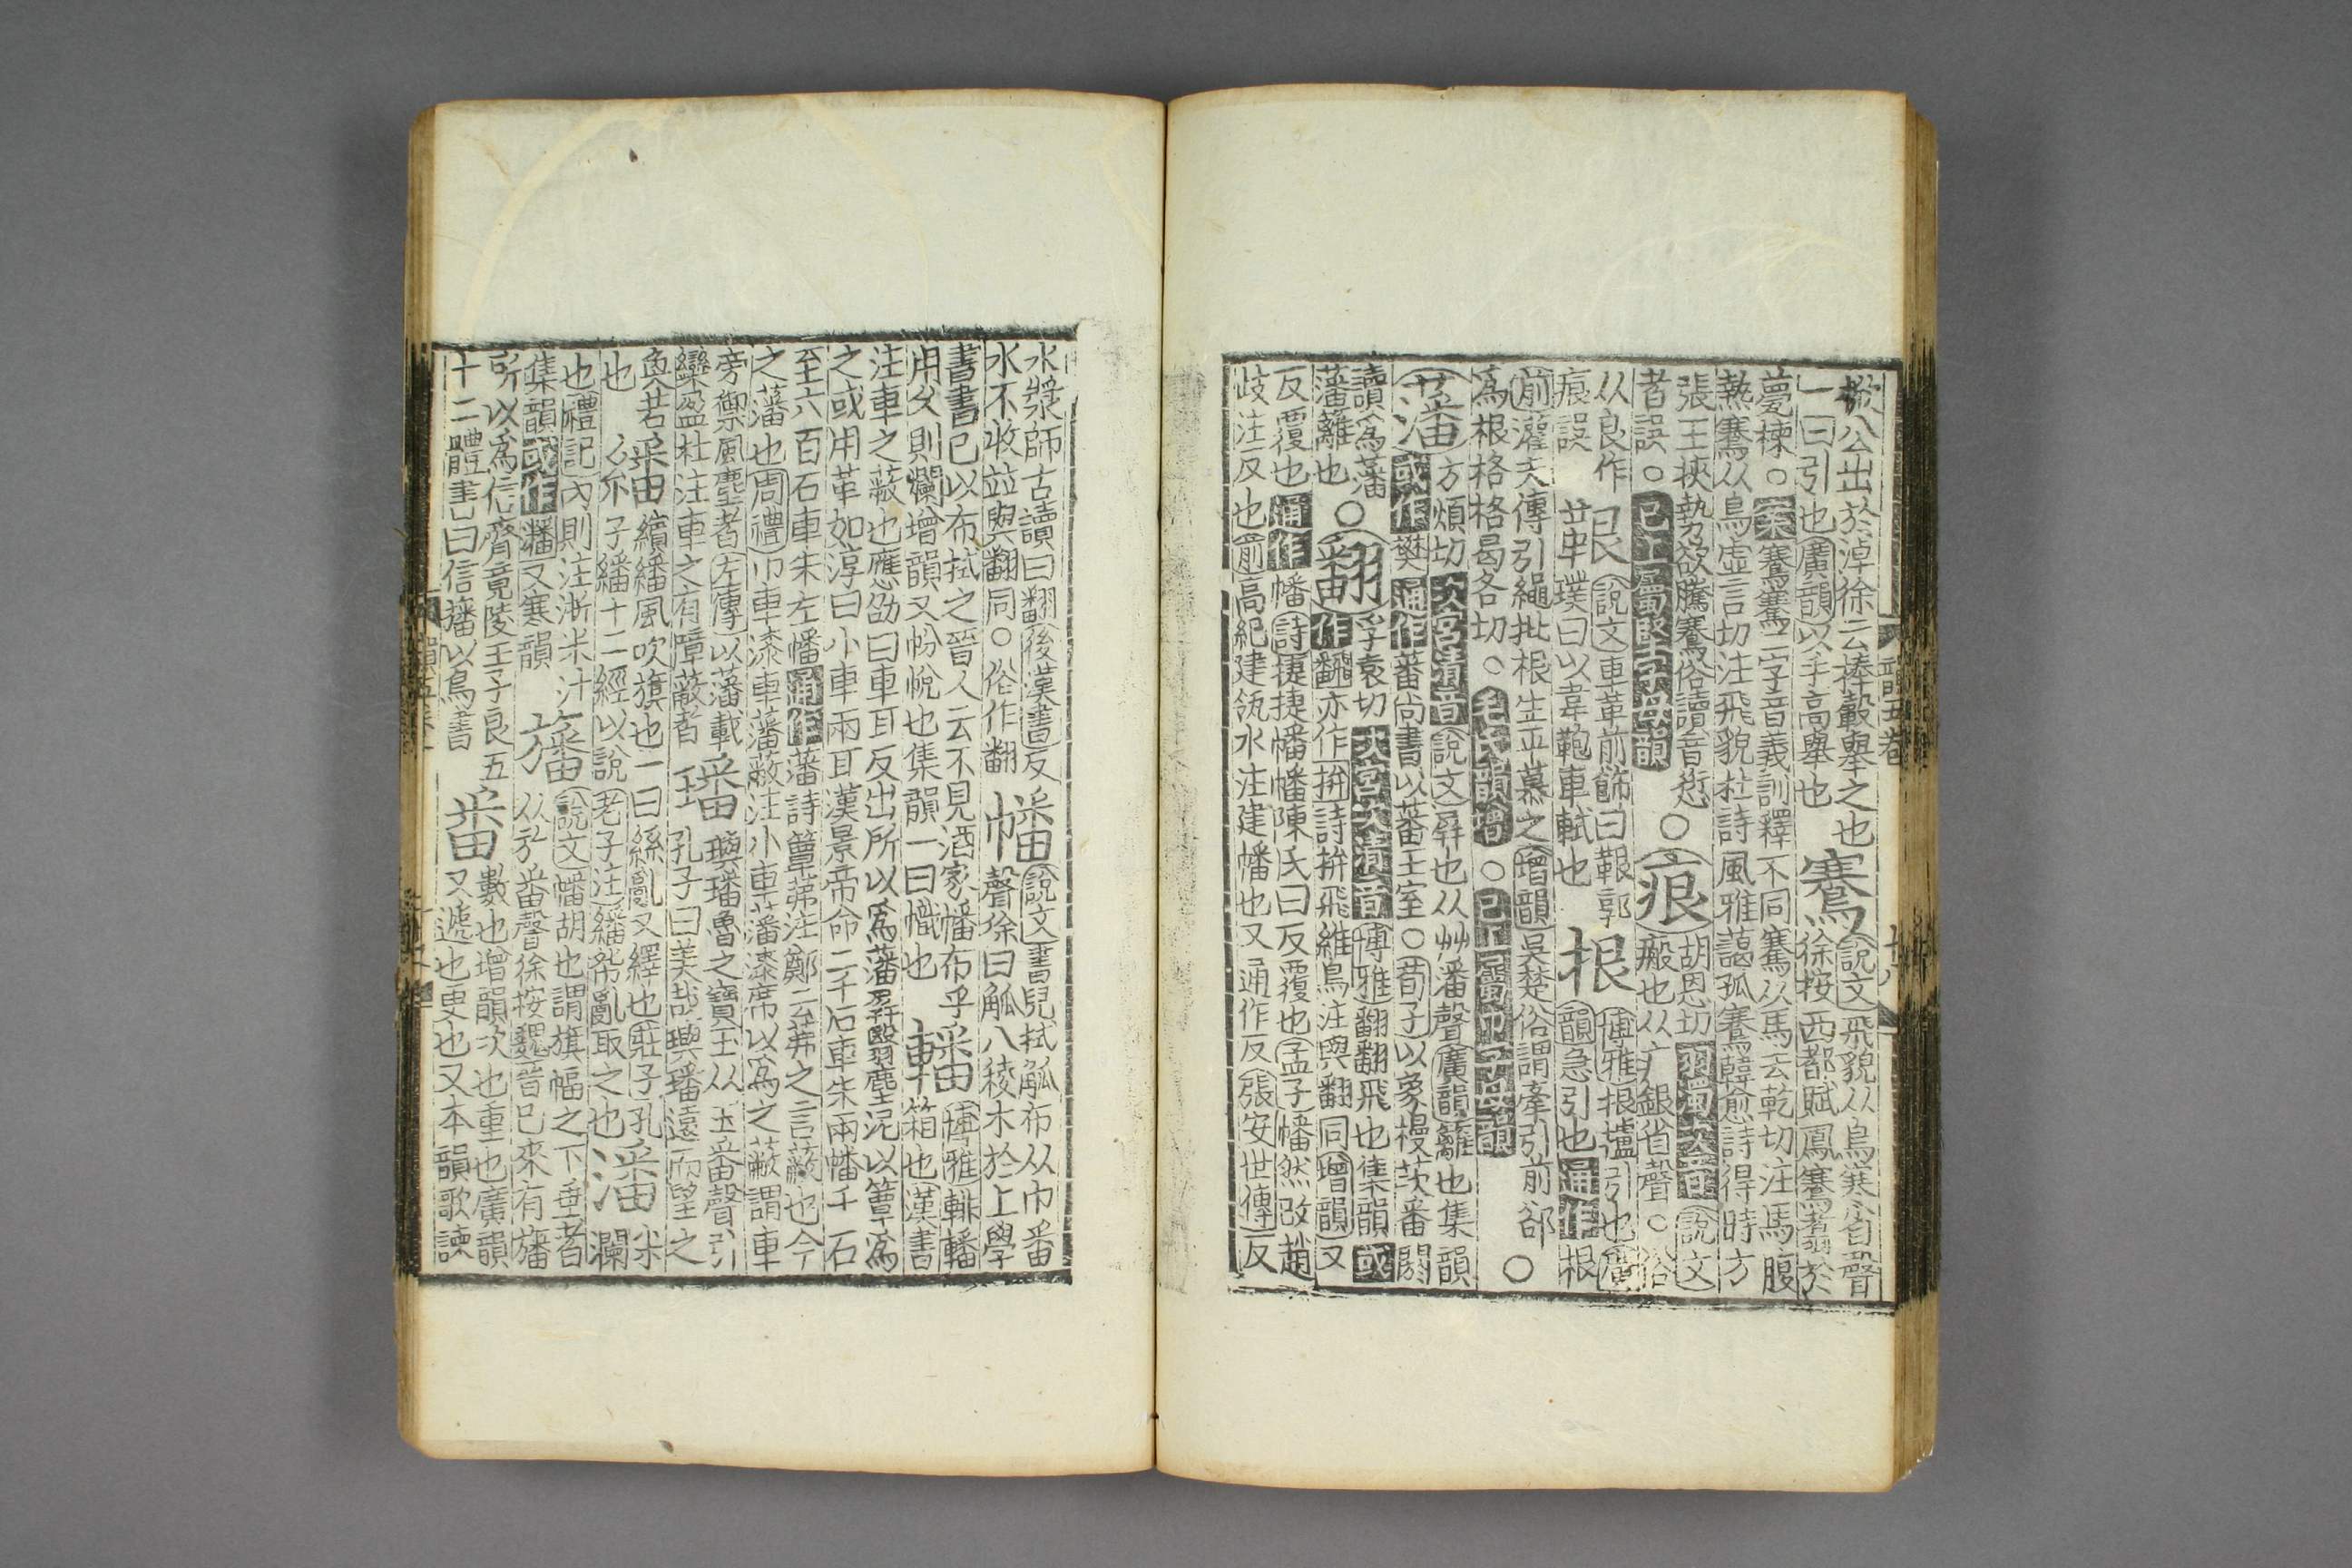 掀公出於淖徐云捧轂舉之也
一曰引也廣韻以手高舉也
騫
說文飛貌从鳥寒省聲
徐按西都賦鳳騫翥於
甍棟○案騫騫二字音義訓釋不同騫从馬去乾切注馬腹
熱騫从鳥虛言切注飛貌杜詩風雅藹孤騫韓愈詩得時方
張王挾勢欲騰騫俗讀音愆○
者誤○已上屬堅字母韻
痕
胡恩切羽濁次音說文
瘢也从疒艮省聲○俗
从良作
痕誤
䡰
說文車革前飾曰䡰郭
璞曰以韋鞔車軾也
根
博雅根壚引也廣
韻急引也通作根
前灌夫傳引繩批根生平慕之增韻吳楚俗謂牽引前郤○
為根格格曷各切○毛氏韻增○已上屬 字母韻○
藩
方煩切次宮清音說文屏也从艸潘聲廣韻籬也集韻
或作樊通作蕃尚書以蕃王室○荀子以象槾茨番閼
讀為藩○
藩籬也
翻
孚袁切次宮次清音博雅翻翻飛也集韻或
作飜亦作拚詩拚飛維鳥注與翻同增韻又
反覆也通作幡詩捷捷幡幡陳氏曰反覆也孟子幡然改趙
歧注反也前高紀建瓴水注建幡也又通作反張安世傳反
韻五卷
十八
水漿師古讀曰翻後漢書反
水不收竝與翻同○俗作翻
幡
說文書兒拭觚布从巾番
聲徐曰觚八稜木於上學
書書已以布拭之晉人云不見酒家幡布乎
用久則爛增韻又帉帨也集韻一曰幟也
轓
博雅轓
箱也漢書
注車之蔽也應劭曰車耳反出所以為藩屏翳塵泥以簟為
之或用革如淳曰小車兩耳漢景帝命二千石車朱兩幡千石
至六百石車朱左幡通作藩詩簟茀注鄭云茀之言蔽也今
之藩也周禮巾車漆車藩蔽注小車藩漆席以為之蔽謂車
旁禦風塵者左傳以藩載
欒盈杜注車之有障蔽者
璠
璵璠魯之寶玉从玉番聲引
孔子曰美哉璵璠遠而望之
奐若
也
繙
繽繙風吹旗也一曰絲亂又繹也莊子孔
子繙十二經以說老子注繙紛亂取之也
潘
米
瀾
也禮記內則注淅米汁
集韻或作䊩又寒韻
旛
說文幡胡也謂旗幅之下垂者
从㫃番聲徐按魏晉已來有旛
所以為信齊竟陵王子良五
十二體書曰信旛以鳥書
番
數也增韻次也重也廣韻
又遞也更也又本韻歌諫